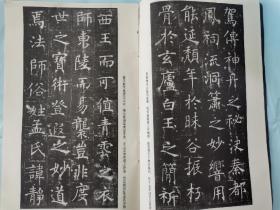 駕傳神丹之秘訣秦都
鳳祠流洞簫之妙響用
能延頹年於昧谷振朽
骨於玄廬白玉之簡祈
西王而可值青雲之衣
師東陵而易襲豈非度
世之寶術登遐之妙道
焉法師俗姓孟氏諱靜